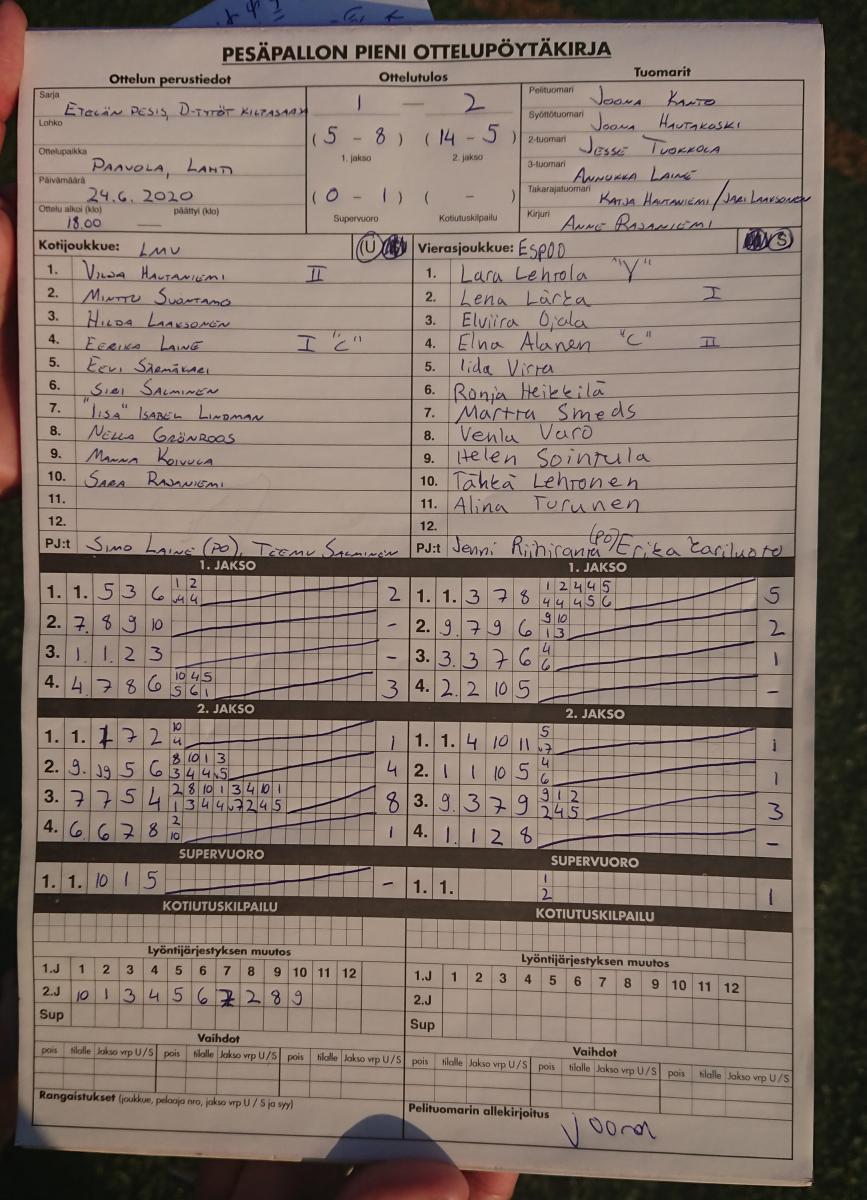 PESÄPALLON PIENI OTTELUPÖYTÄKIRJA
Ottelun perustiedot Ottelutulos Tuomarit
Sarja ETELÄN PESIS, D-TYTÖT
Lohko
Ottelupaikka PAAVOLA, LAHTI
Päivämäärä 24.6. 2020
Ottelu alkoi (klo) 18.00 päättyi (klo) —
1 — 2
( 5 - 8 ) ( 14 - 5 )
1. jakso 2. jakso
( 0 - 1 ) ( - )
Supervuoro Kotiutuskilpailu
Pelituomari JOONA KANTO
Syöttötuomari JOONA HAUTAKOSKI
2-tuomari JESSE TUOKKOLA
3-tuomari ANNUKKA LAINE
Takarajatuomari KATJA HAUTANIEMI / JARI LAAKSONEN
Kirjuri ANNE RAJANIEMI
Kotijoukkue: LMV U
1. VILJA HAUTANIEMI II
2. MINTTU SUONTAMO
3. HILDA LAAKSONEN
4. EERIKA LAINE I "C"
5. EEVI SÄRMÄKARI
6. SIRI SALMINEN
7. "IISA" ISABEL LINDMAN
8. NELLA GRÖNROOS
9. MANNA KOIVULA
10. SARA RAJANIEMI
11.
12.
PJ:t SIMO LAINE (PO), TEEMU SALMINEN
Vierasjoukkue: ESPOO S
1. Lara Lehtola "Y"
2. Lena Lärka I
3. Elviira Ojala
4. Elna Alanen "C" II
5. Iida Virta
6. Ronja Heikkilä
7. Martta Smeds
8. Venla Varo
9. Helen Sointula
10. Tähkä Lehtonen
11. Alina Turunen
12.
PJ:t Jenni Riihiranta (PO) Erika Kariluoto
1. JAKSO
1. 1. 5 3 6 1 2 2
4 4
2. 7. 8 9 10 -
3. 1. 1 2 3 -
4. 4 7 8 6 10 4 5 3
5 6 1
2. JAKSO
1. 1. 1 7 2 10 1
4
2. 9. 5 6 8 10 1 3 4
3 4 4 5
3. 7 7 5 4 2 8 10 1 3 4 10 1 8
1 3 4 4 7 2 4 5
4. 6. 6 7 8 2 1
10
SUPERVUORO
1. 1. 10 1 5 -
KOTIUTUSKILPAILU
1. JAKSO
1. 1. 3 7 8 1 2 4 4 5 5
4 4 4 5 6
2. 9. 7 9 6 9 10 2
1 3
3. 3. 3 7 6 4 1
6
4. 2. 2 10 5 -
2. JAKSO
1. 1. 4 10 11 5 1
7
2. 1 1 10 5 4 1
6
3. 9. 3 7 9 9 1 2 3
2 4 5
4. 1. 1 2 8 -
SUPERVUORO
1. 1. 1 1
2
KOTIUTUSKILPAILU
Lyöntijärjestyksen muutos
1.J 1 2 3 4 5 6 7 8 9 10 11 12
2.J 10 1 3 4 5 6 7 2 8 9
Sup
Vaihdot
pois tilalle Jakso vrp U / S pois tilalle Jakso vrp U / S pois tilalle Jakso vrp U / S
Rangaistukset (joukkue, pelaaja nro, jakso vrp U / S ja syy)
Lyöntijärjestyksen muutos
1.J 1 2 3 4 5 6 7 8 9 10 11 12
2.J
Sup
Vaihdot
pois tilalle Jakso vrp U / S pois tilalle Jakso vrp U / S pois tilalle Jakso vrp U / S
Pelituomarin allekirjoitus
Joona